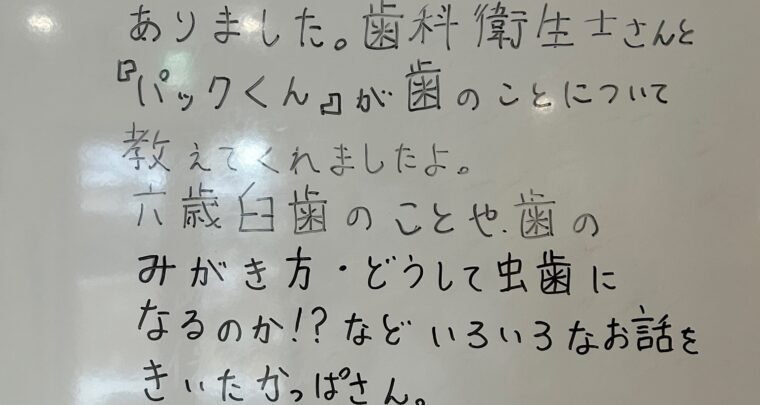 ありました。歯科衛生士さんと
『パックくん』が歯のことについて
教えてくれましたよ。
六歳臼歯のことや、歯の
みがき方・どうして虫歯に
なるのか!?などいろいろなお話を
きいたかっぱさん。